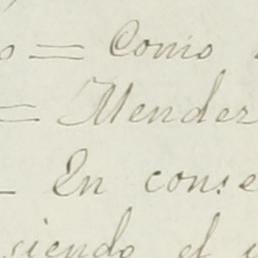 o = Como
= Mender
- En conse
siendo el